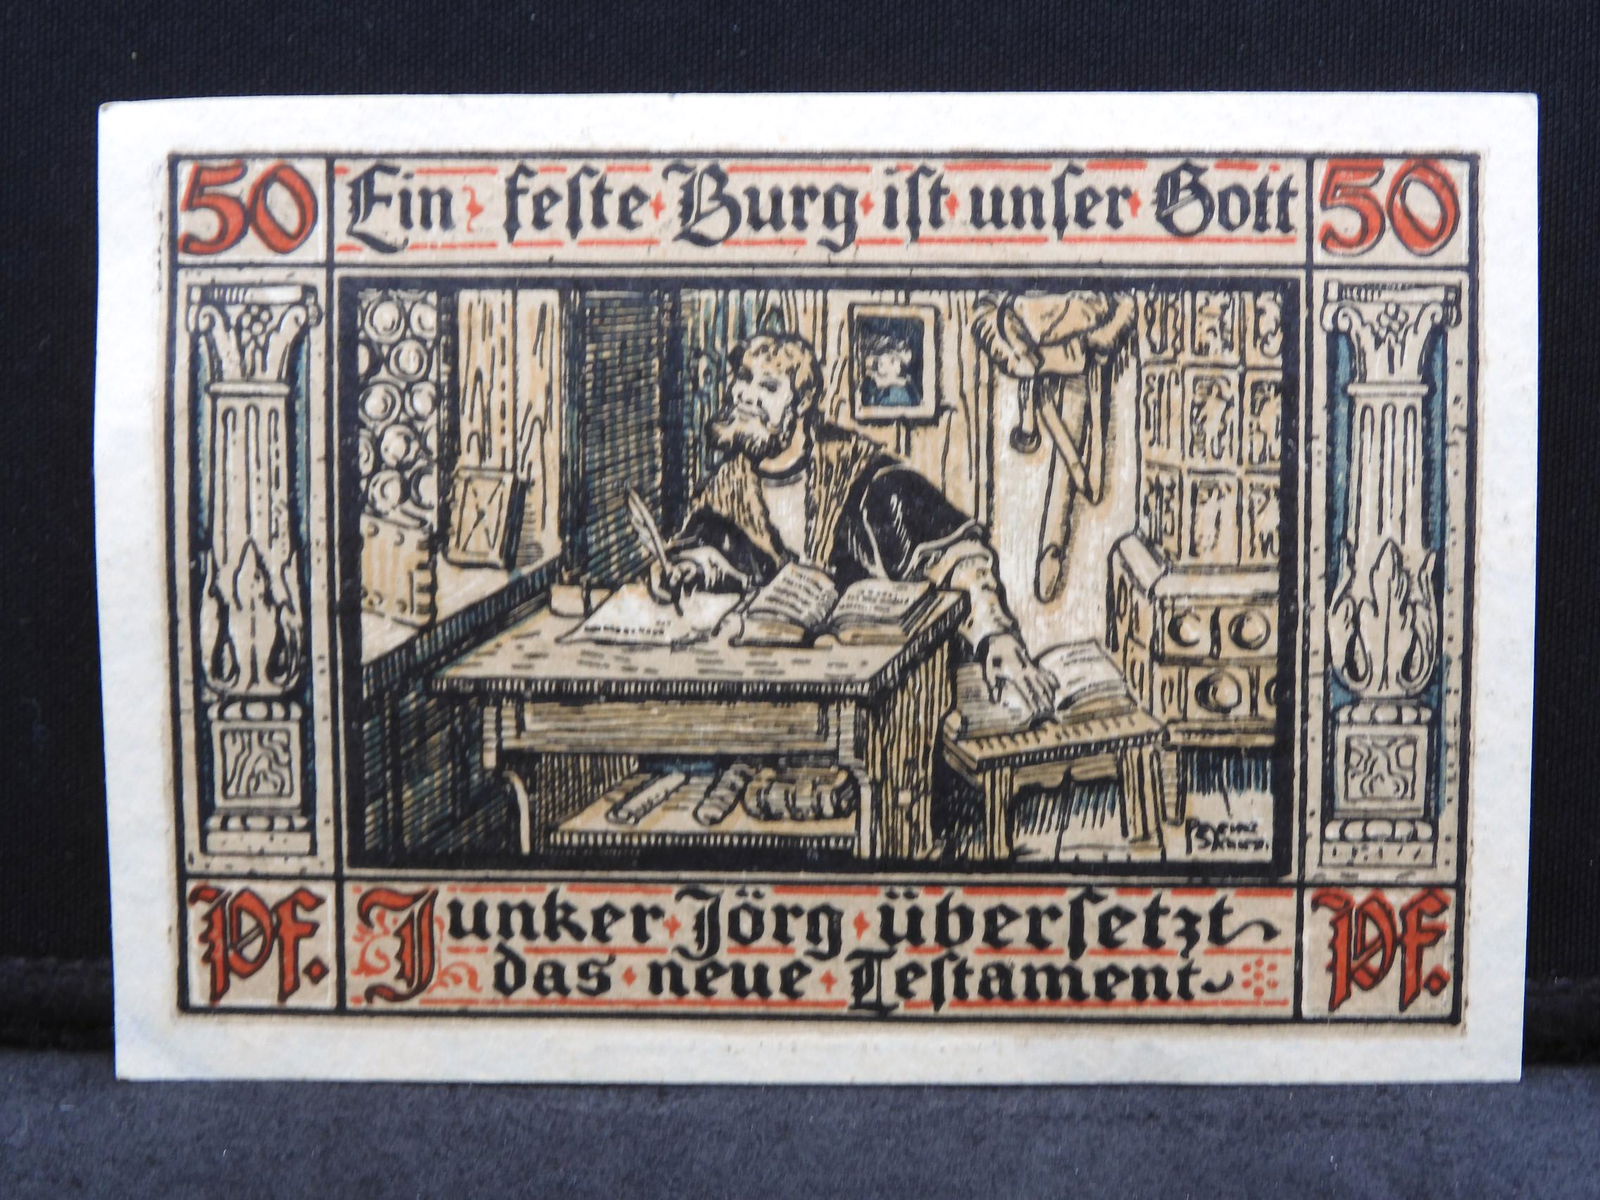 50 Ein feste Burg ist unser Gott 50
Pf. Junker Jörg übersetzt Pf.
das neue Testament